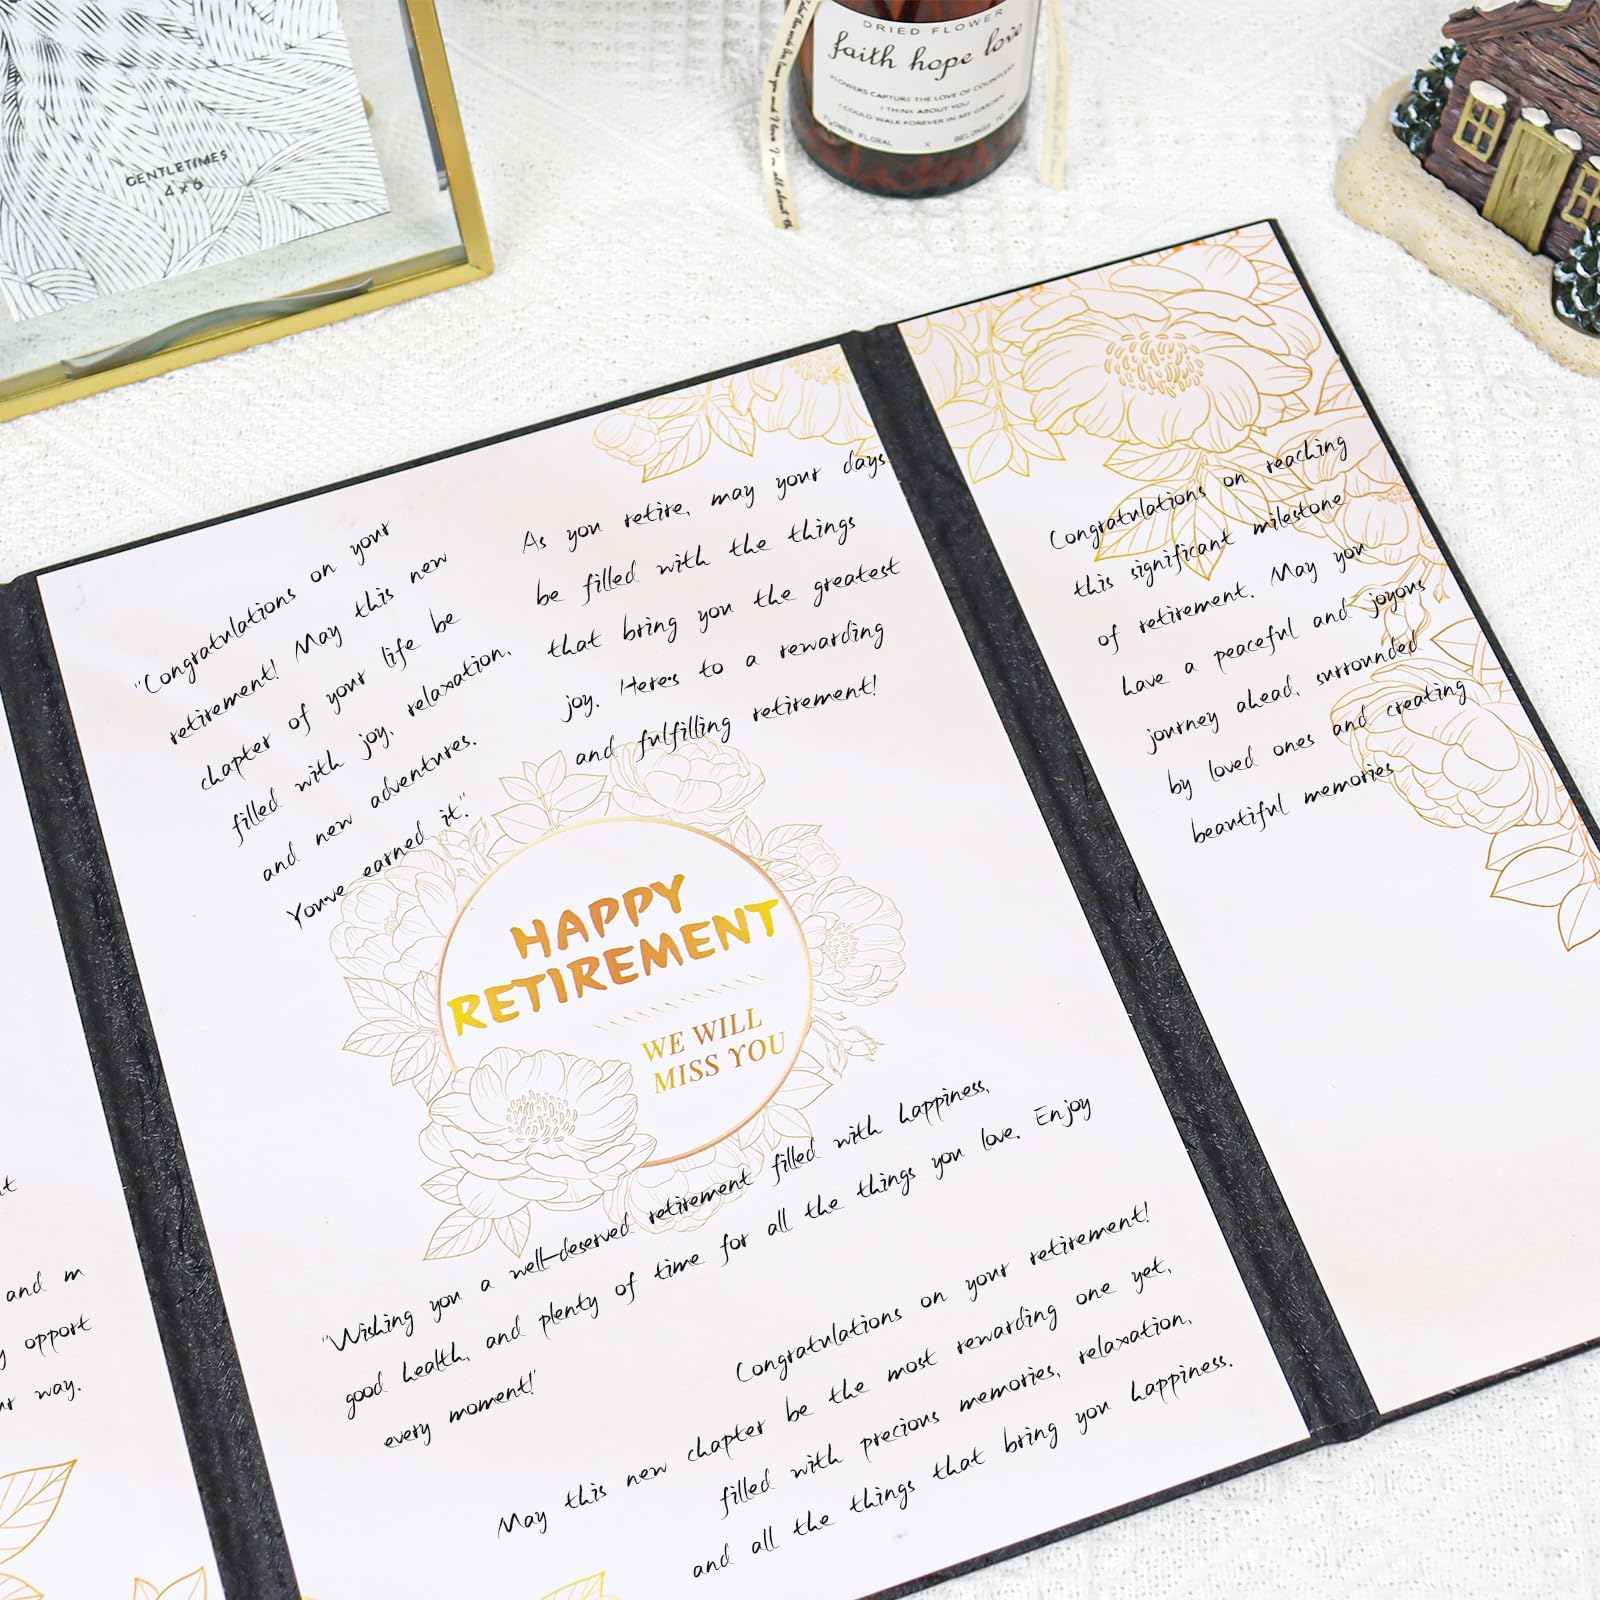 GENTLETIMES
4 x 6
DRIED FLOWER
faith hope love
FLOWERS CAPTURE THE LOVE OF COUNTLESS
I THINK ABOUT YOU
I COULD WALK FOREVER IN MY GARDEN
FLORAL X BELONGS TO
"Congratulations on your
retirement! May this new
chapter of your life be
filled with joy, relaxation,
and new adventures.
You've earned it."
As you retire, may your days
be filled with the things
that bring you the greatest
joy. Here's to a rewarding
and fulfilling retirement!
Congratulations on reaching
this significant milestone
of retirement. May you
have a peaceful and joyous
journey ahead, surrounded
by loved ones and creating
beautiful memories
HAPPY
RETIREMENT
WE WILL
MISS YOU
"Wishing you a well-deserved retirement filled with happiness,
good health, and plenty of time for all the things you love. Enjoy
every moment!"
Congratulations on your retirement!
May this new chapter be the most rewarding one yet,
filled with precious memories, relaxation,
and all the things that bring you happiness.
and m
opport
way.